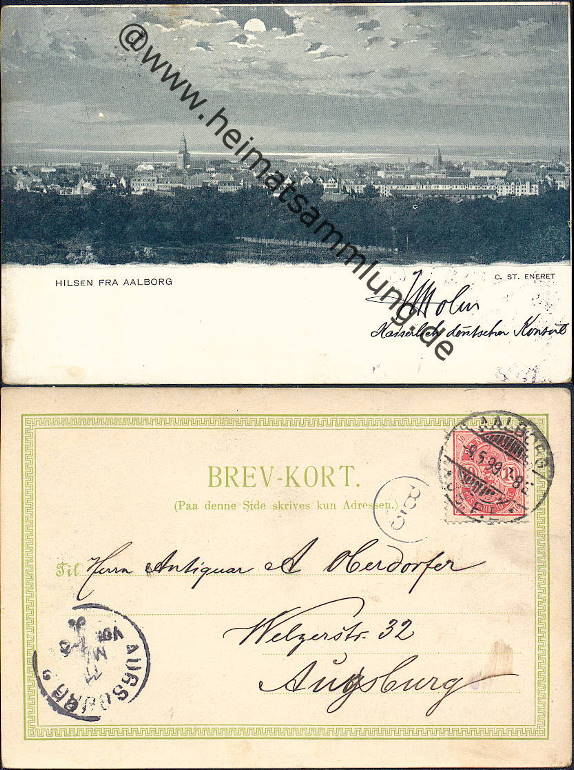 @www.heimatsammlung.de
HILSEN FRA AALBORG
C. ST. ENERET
Kaiserlich deutscher Konsul
BREV-KORT.
(Paa denne Side skrives kun Adressen.)
AALBORG
835
Til Herrn Antiquar A Oberdorfer
Welzerstr. 32
Augsburg
AUGSBURG